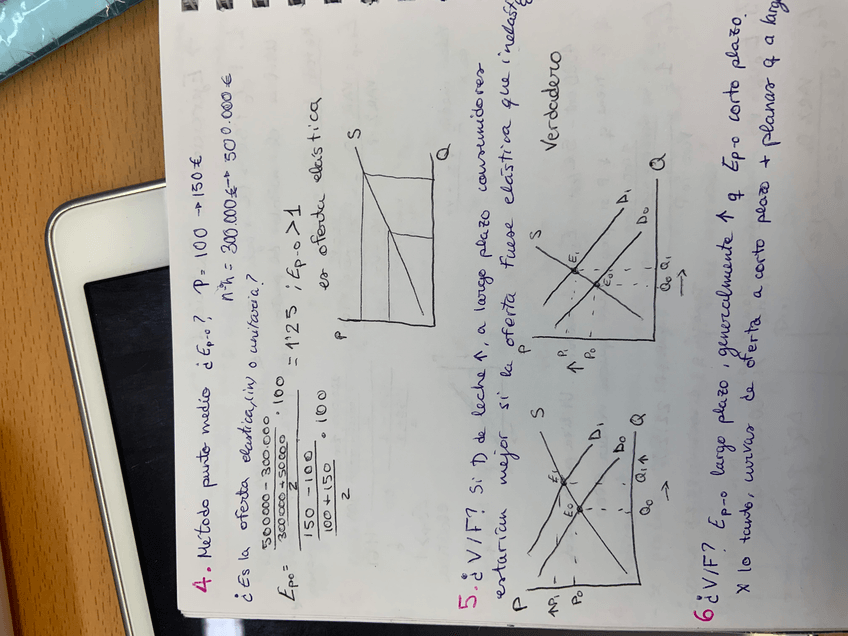 4. Método punto medio ¿Ep-o? P = 100 → 150€
nºh = 300.000€ → 500.000€
¿Es la oferta elastica, in, o unitaria?
Epo = 500000 - 300.000 / 300000 + 50000 / 2 · 100 / 150 - 100 / 100 + 150 / 2 · 100 = 1'25 ; Ep-o > 1
es oferta elastica
P
S
Q
5. ¿V/F? Si D de leche ↑, a largo plazo consumidores
estarian mejor si la oferta fuese elastica que
Verdadero
P
S
D1
D0
E1
E0
↑P1
P0
Q0 Q1↑
Q
→
P
S
D1
D0
E1
E0
↑ P1
P0
Q0 Q1
Q
→
6 ¿V/F? Ep-o largo plazo, generalmente ↑ q Ep-o corto plazo.
x lo tanto, curvas de oferta a corto plazo + planas q a